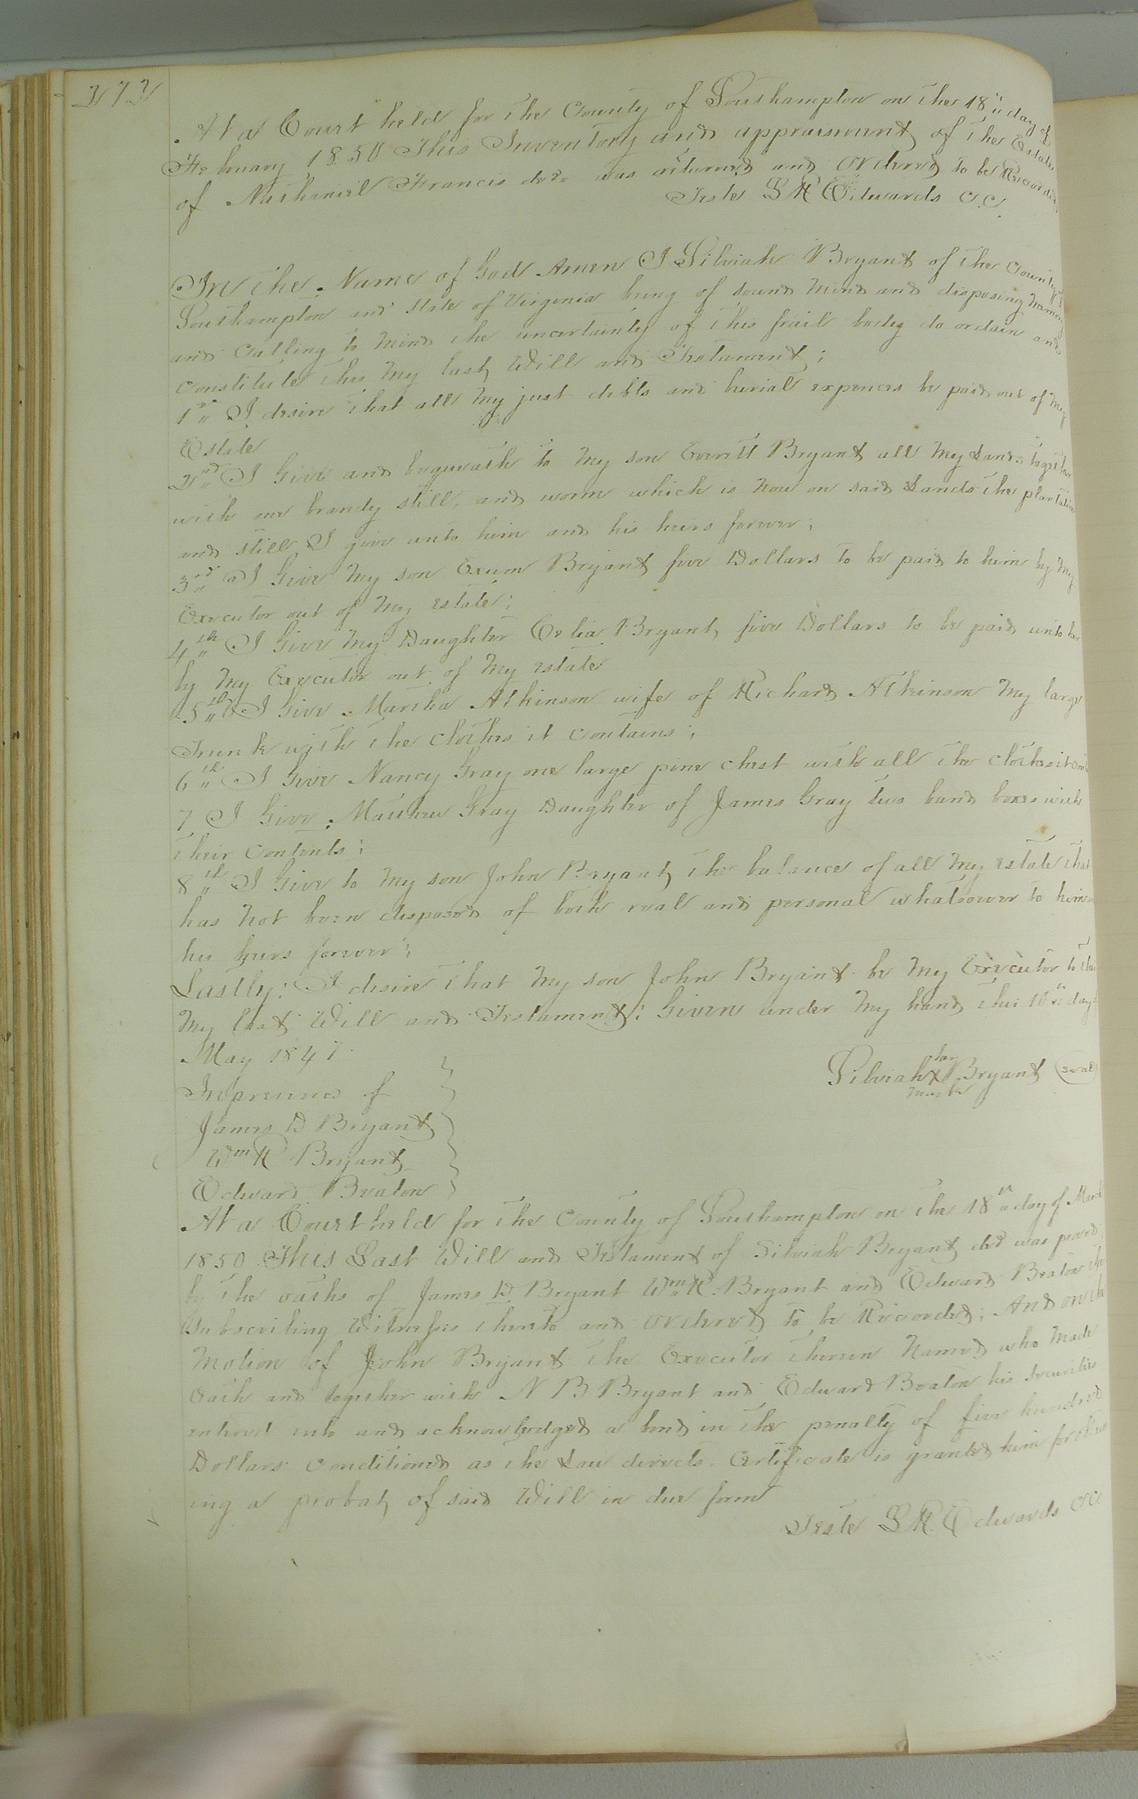 372
At a Court held for the County of Southampton on the 18th day of
February 1850 This Inventory and appraisement of the Estate
of Nathaniel Francis decd was returned and Ordered to be Recorded
Teste L R Edwards C.C.
In the Name of God Amen I Silviah Bryant of the County of
Southampton and State of Virginia being of sound Mind and disposing Memory
and Calling to Mind the uncertainty of this frail body do ordain and
constitute this My last Will and Testament;
1st I desire that all My just debts and burial expences be paid out of My
Estate
2nd I Give and bequeath to My son Everitt Bryant all My Lands together
with one brandy still, and worm which is Now on said Lands the plantation
and still I give unto him and his heirs forever;
3rd I Give My son Exum Bryant five Dollars to be paid to him by My
Executor out of My estate;
4th I Give My Daughter Celia Bryant five Dollars to be paid unto her
by My Executor out of My estate
5th I Give Martha Atkinson wife of Richard Atkinson My large
Trunk with the Clothes it Contains;
6th I Give Nancy Gray one large pine chest with all the clothes it
7 I Give Gray Daughter of James Gray two band boxes with
their Contents;
8th I Give to My son John Bryant the balance of all My estate that
has Not been disposed of both real and personal whatsoever to him
his heirs forever;
Lastly: I desire that My son John Bryant be My Executor to this
My last Will and Testament: Given under My hand this 10th day
May 1847
Silviah her X mark Bryant (seal)
In presence of
James D Bryant
Wm R Bryant
Edward Beaton
At a Court held for the County of Southampton on the 18th day of March
1850 This Last Will and Testament of Silviah Bryant decd was proved
by the oaths of James D. Bryant Wm R. Bryant and Edward Beaton the
Subscribing Witnesses thereto and Ordered to be Recorded; And on the
Motion of John Bryant the Executor therein Named who Made
Oath and together with N B Bryant and Edward Beaton his Securities
entered into and acknowledged a bond in the penalty of five hundred
Dollars Conditioned as the Law directs. Certificate is granted him for obtain
ing a probat of said Will in due form
Teste L R Edwards C.C.